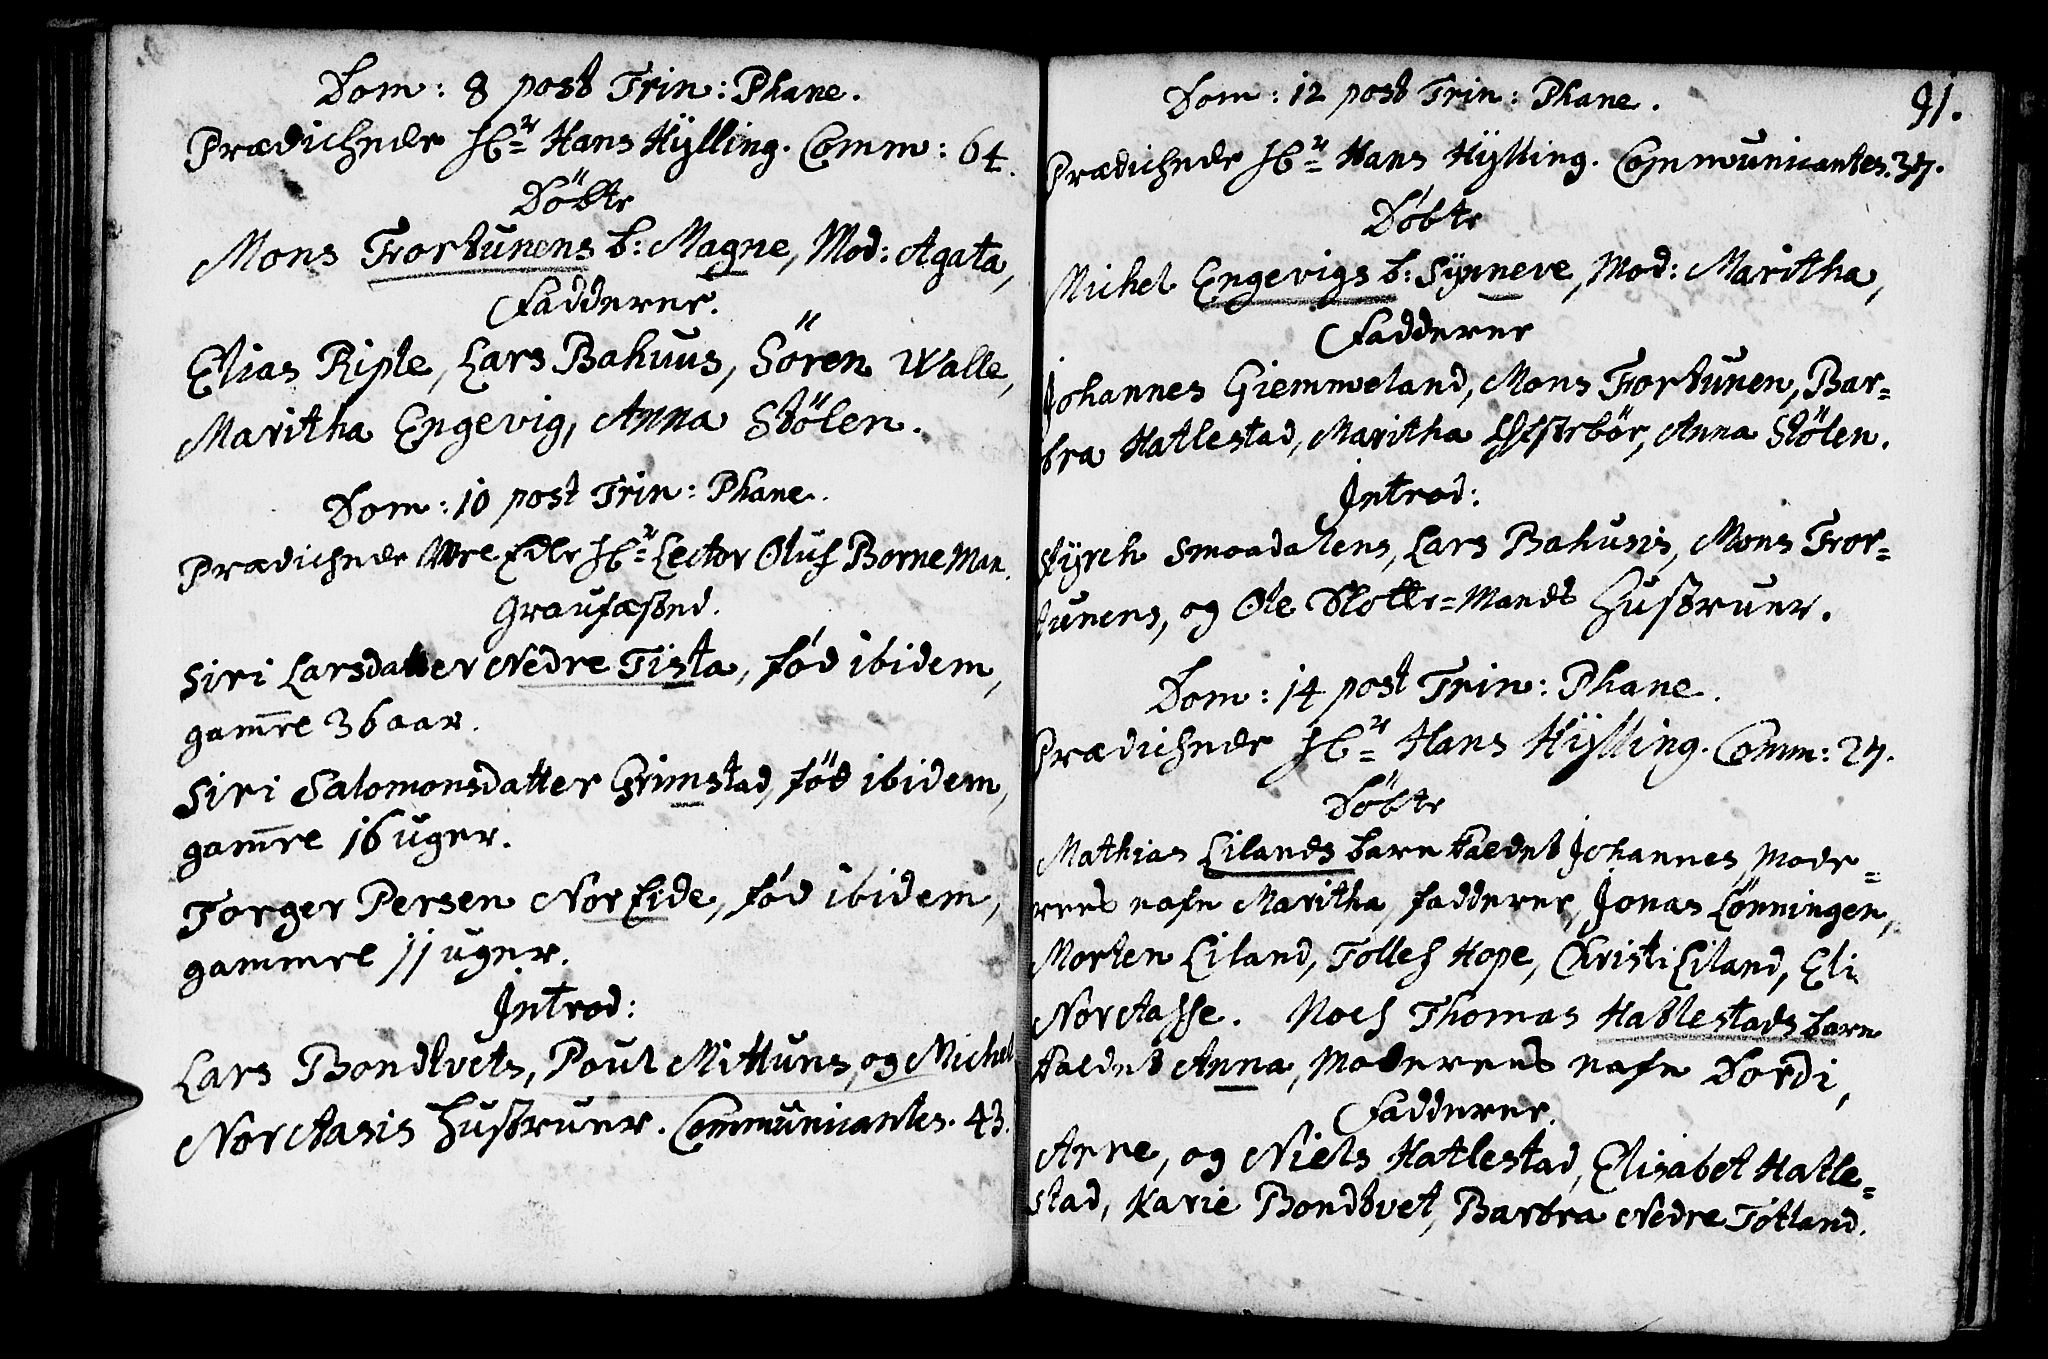 Dom: 8 post Trin: Phane.
Prædichede Hr= Hans Hÿlling. Comm: 64.
Döbte
Mons Frortunens b: Magne, Mod: Agata,
Fadderer.
Elias Riple, Lars Bahuus, Sören Walle,
Maritha Engevig, Anna Stölen.
Dom: 10 post Trin: Phane.
Prædichede Hr= Lector Oluf Borneman.
Graufæsted.
Siri Larsdatter Nedre Tista, fød ibidem,
gam̅el 36 aar.
Siri Salomonsdatter Grimstad, föd ibidem,
gam̅el 16 uger.
Torger Persen Nor Eide, fød ibidem,
gammel 11 uger.
Introd:
Lars Bondhvets, Poul Mittuns, og Michel
Nordtasis Hustruer. Communicantes. 43.
91.
Dom: 12 post Trin: Phane.
Prædichede Hr= Hans Hÿlling. Communicantes. 37.
Døbte
Michel Engevigs b: Sÿnneve, Mod: Maritha,
Fadderer
Johannes Giemmeland, Mons Frortunen, Bar=
bra Hatlestad, Maritha Anna Stölen.
Introd:
Stÿrch Smaadalens, Lars Bahusis, Mons Fror=
tunens, og Ole Slotts=Mands Hustruer.
Dom: 14 post Trin: Phane.
Prædichede Hr= Hans Hÿlling. Comm: 27.
Döbte
Mathias Lilands barn kaldet Johannes Mode=
rens nafn Maritha, fadderer, Jonas Lönningen,
Morten Liland, Tollef Hope, Christi Liland, Eli
Nordtasse. Noch Thomas Hatlestads barn
kaldet Anna, Moderens nafn Dordi,
Fadderer.
Arne, og Niels Hatlestad, Elisabet Hatle=
stad, Karie Bondhvet, Barbra Nedre Tötland.